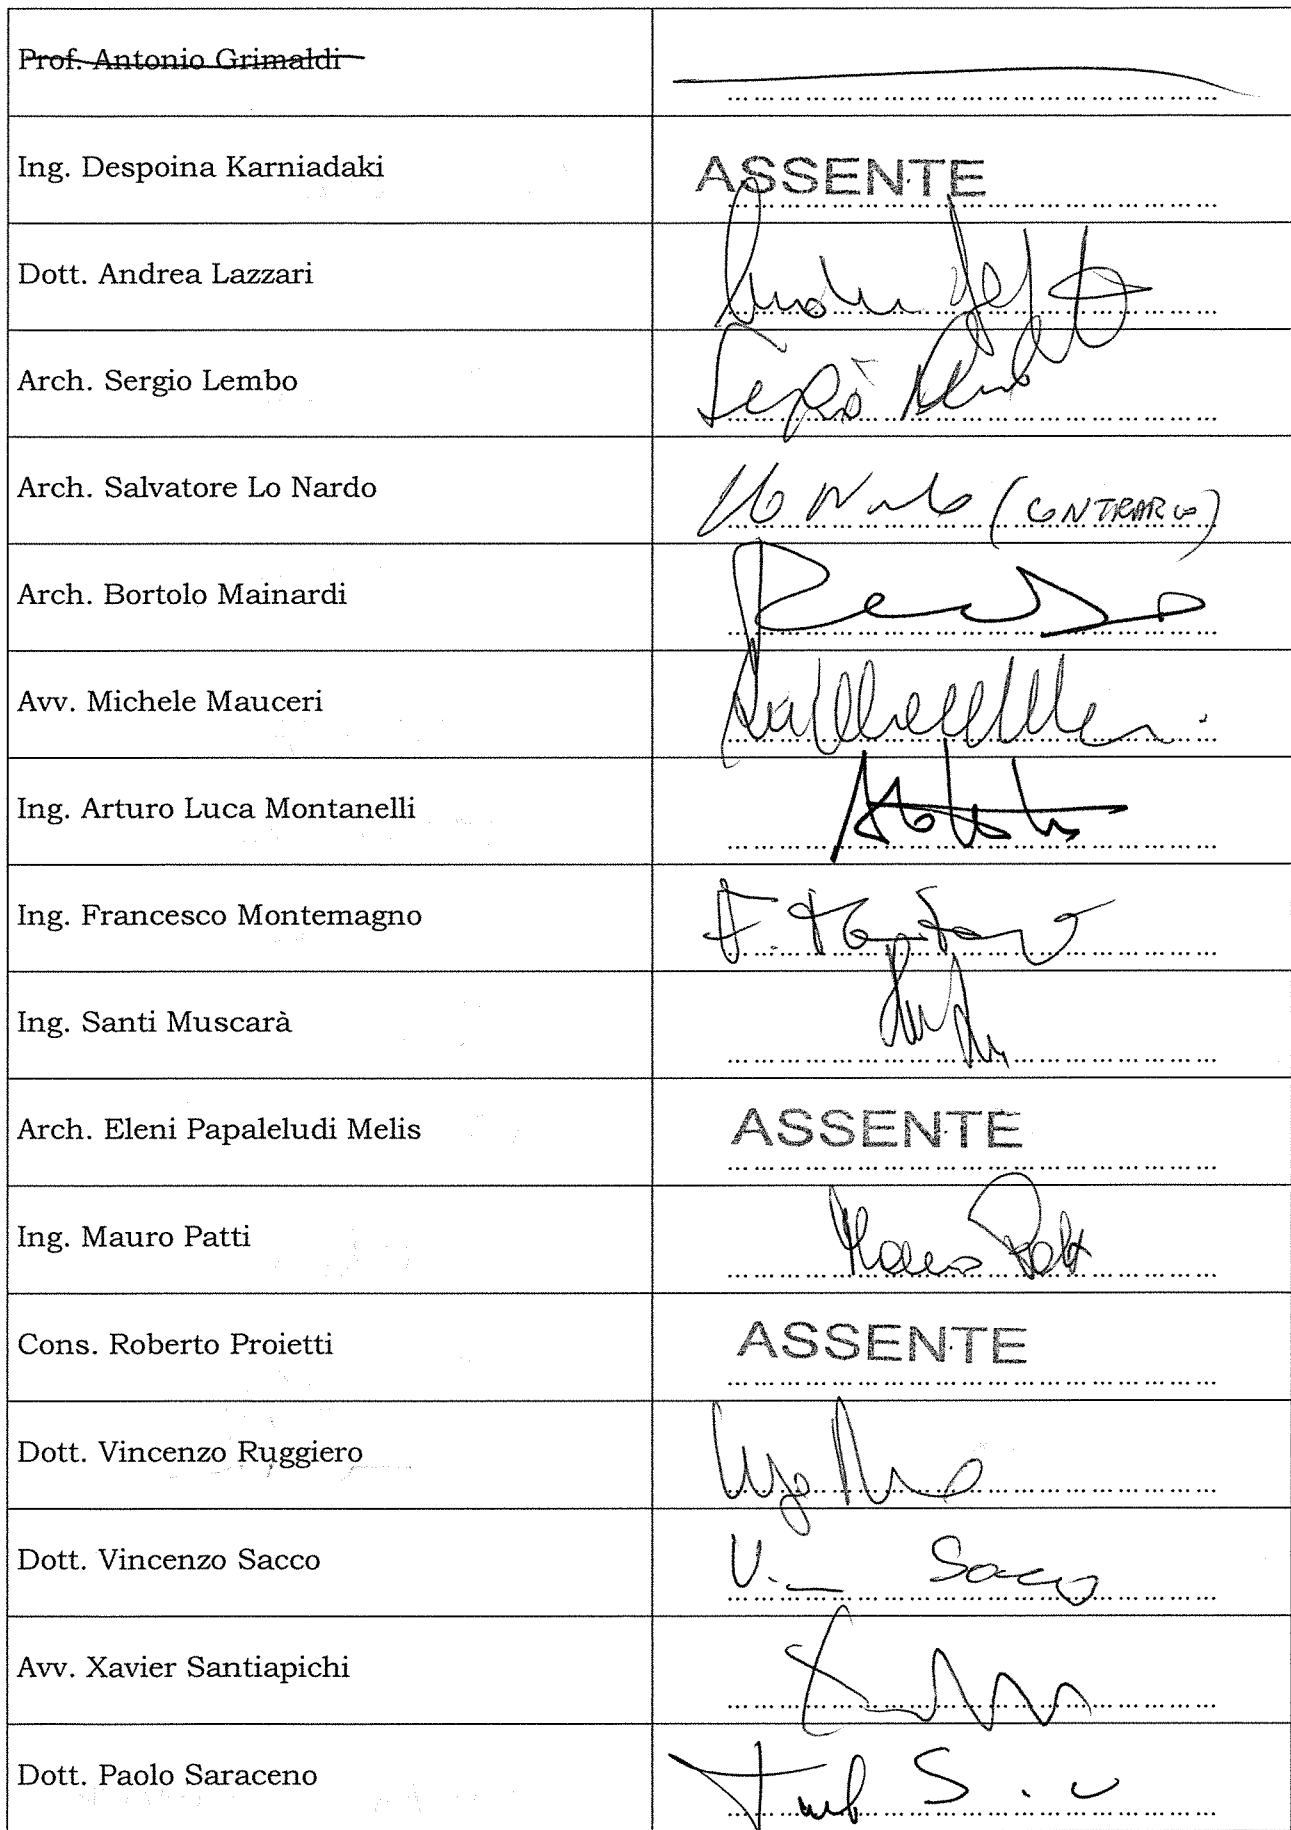 Prof. Antonio Grimaldi
Ing. Despoina Karniadaki
ASSENTE
Dott. Andrea Lazzari
Arch. Sergio Lembo
Sergio Lembo
Arch. Salvatore Lo Nardo
Lo Nardo (CONTRARIO)
Arch. Bortolo Mainardi
Avv. Michele Mauceri
Ing. Arturo Luca Montanelli
Ing. Francesco Montemagno
Ing. Santi Muscarà
Arch. Eleni Papaleludi Melis
ASSENTE
Ing. Mauro Patti
Mauro Patti
Cons. Roberto Proietti
ASSENTE
Dott. Vincenzo Ruggiero
Dott. Vincenzo Sacco
V. Sacco
Avv. Xavier Santiapichi
Dott. Paolo Saraceno